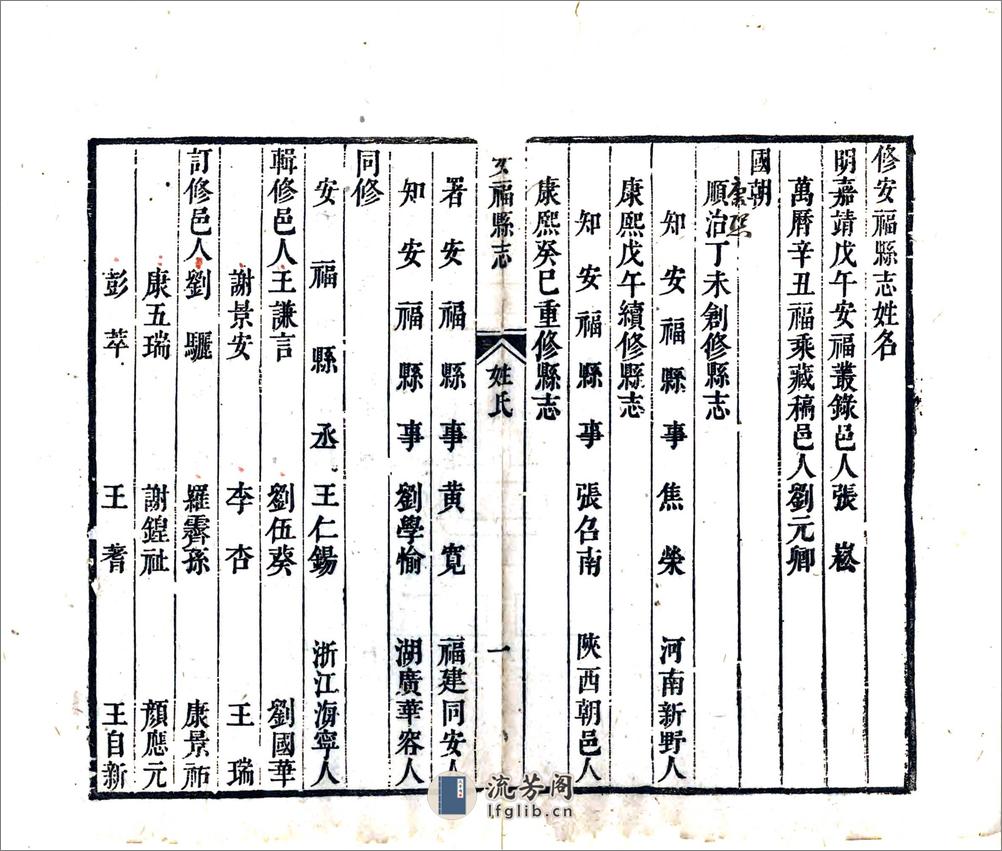 修安福縣志姓名
明嘉靖戊午安福叢錄邑人張崧
萬曆辛丑福乘藏稿邑人劉元卿
國朝
康熙
順治丁未創修縣志
知安福縣事焦榮 河南新野人
康熙戊午續修縣志
知安福縣事張召南 陝西朝邑人
康熙癸巳重修縣志
安福縣志 姓氏 一
署安福縣事黃寬 福建同安人
知安福縣事劉學愉 湖廣華容人
同修
安福縣丞王仁錫 浙江海寧人
輯修邑人王謙言 劉伍葵 劉國華
謝景安 李杏 王瑞
訂修邑人劉驪 羅霽孫 康景祊
康五瑞 謝鍠祉 顏應元
彭萃 王蓍 王自新
流芳阁
lfglib.cn